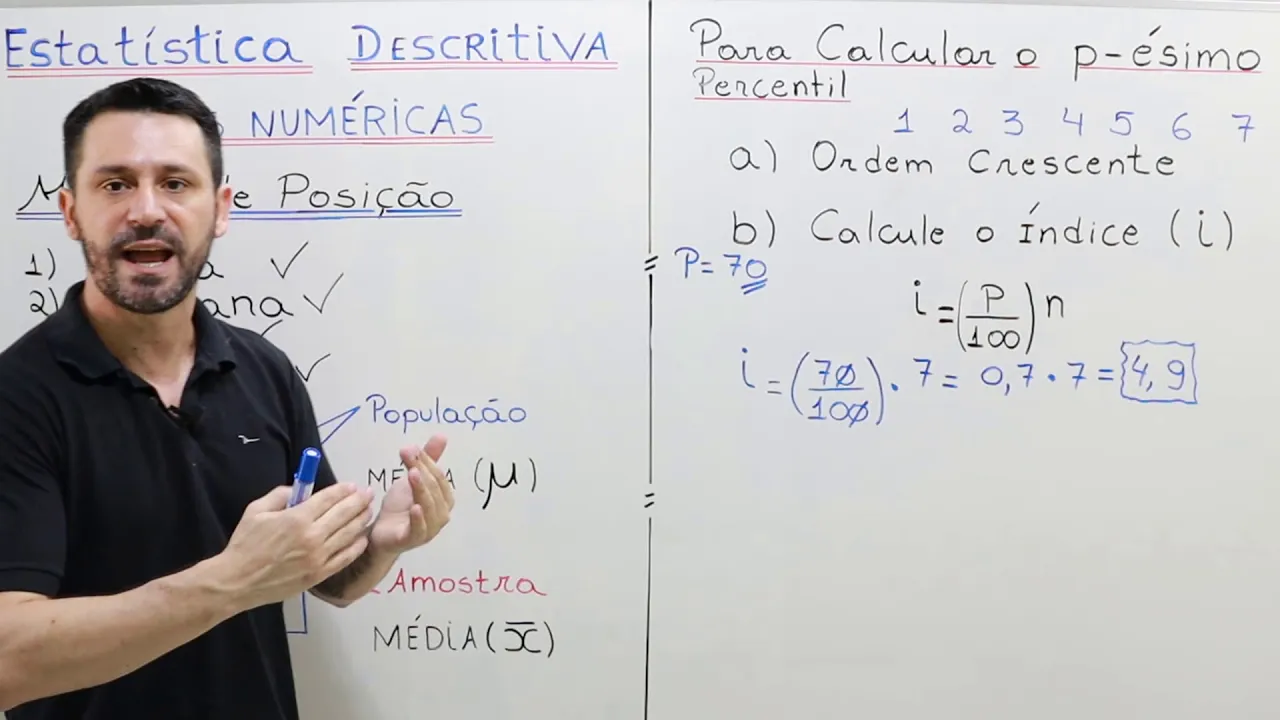 Estatística DESCRITIVA
NUMÉRICAS
Posição
1)
2)
População
(μ)
Amostra
MÉDIA (x̄)
Para Calcular o p-ésimo
Percentil
1 2 3 4 5 6 7
a) Ordem Crescente
b) Calcule o Índice (i)
P = 70
i = (P/100) n
i = (70/100) · 7 = 0,7 · 7 = 4,9